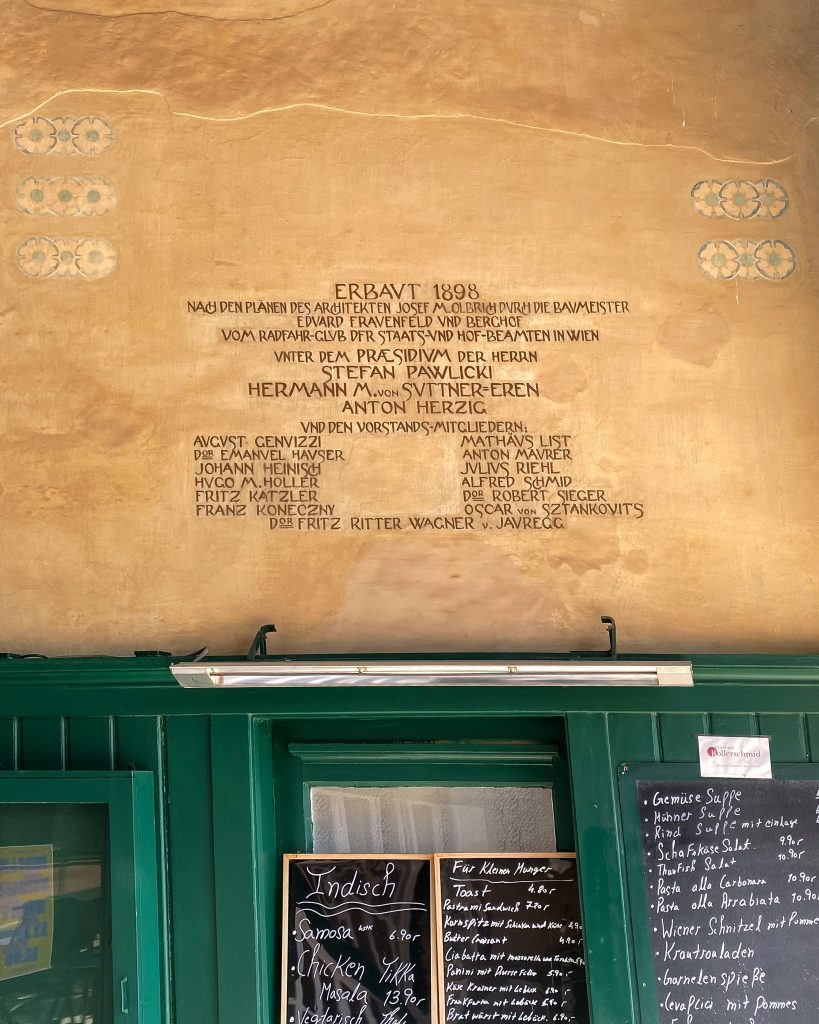 ERBAVT 1898
NACH DEN PLÄNEN DES ARCHITEKTEN JOSEF M. OLBRICH DVRCH DIE BAVMEISTER
EDVARD FRAVENFELD VND BERGHOF
VOM RADFAHR-CLVB DER STAATS-VND HOF-BEAMTEN IN WIEN
VNTER DEM PRÆSIDIVM DER HERRN
STEFAN PAWLICKI
HERMANN M. VON SVTTNER=EREN
ANTON HERZIG
VND DEN VORSTANDS-MITGLIEDERN:
AVGVST GENVIZZI
DOR EMANVEL HAVSER
JOHANN HEINISCH
HVGO M. HOLLER
FRITZ KATZLER
FRANZ KONECZNY
MATHÄVS LIST
ANTON MAVRER
JVLIVS RIEHL
ALFRED SCHMID
DOR ROBERT SIEGER
OSCAR VON SZTANKOVITS
DOR FRITZ RITTER WAGNER V. JAVREGG
Indisch
• Samosa 6.90
• Chicken Tikka
Masala 13.90
• Vegetarisch
Für Kleine Hunger
Toast 4.80
Pastrami Sandwich 7.20
Kornspitz mit Schinken und Käse
Butter Croissant 4.90
Ciabatta mit mozzarella und Tomate
Panini mit 5.90
Käse Krainer mit Gebäck 6.90
Frankfurter mit Gebäck 6.90
Bratwürst mit Gebäck 6.90
Pöllerschmid
• Gemüse Suppe
• Hühner Suppe
• Rind Suppe mit einlage
• Schafskäse Salat 9.90
• Thunfish Salat 10.90
• Pasta alla Carbonara 10.90
• Pasta alla Arrabiata 10.90
• Wiener Schnitzel mit Pomme
• Krautrouladen
• Garnelen spieße
• Cevapcici mit pommes